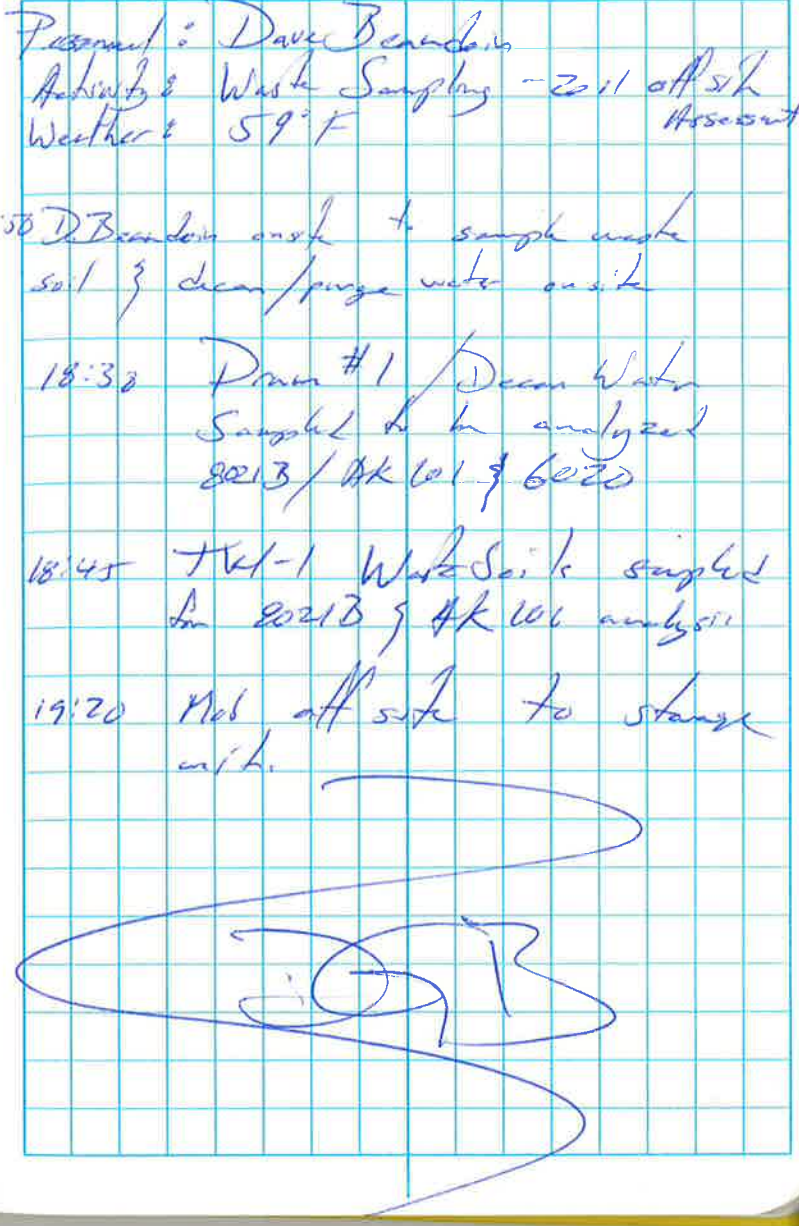 Personnel: Dave Beaudoin
Activity: Waste Sampling - 2011 offsite
Assessment
Weather: 59°F
:50 D. Beaudoin onsite to sample waste
soil & decon/purge water onsite
18:30 Drum #1 / Decon Water
Sampled to be analyzed
8021B / AK 101 & 6020
18:45 Waste Soils sampled
for 8021B & AK 101 analysis
19:20 Mob off site to storage
unit.
DB